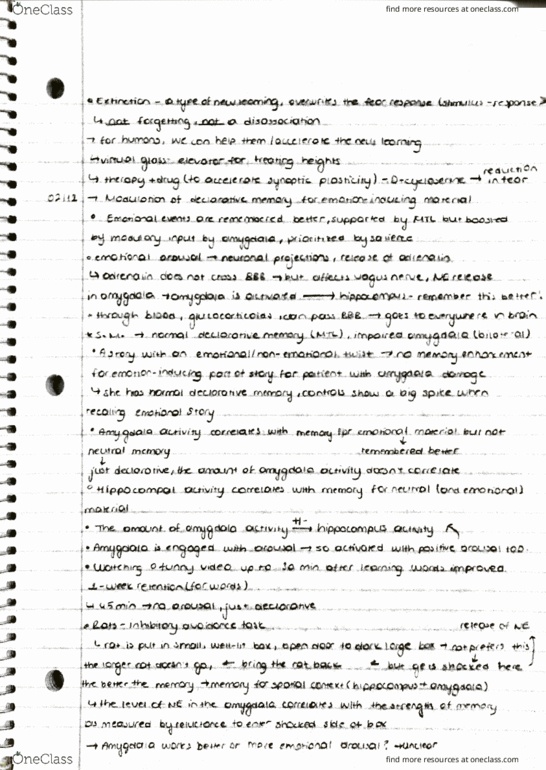 OneClass
find more resources at oneclass.com
• Extinction - a type of new learning, overwrites the fear response (stimulus - response)
↳ not forgetting, not a disassociation
→ for humans, we can help them/accelerate the new learning
↳ virtual glass elevator for treating heights
reduction
↳ therapy + drug (to accelerate synaptic plasticity) - D-cycloserine → in fear
→ Modulation of declarative memory for emotion-inducing material
• Emotional events are remembered better, supported by MTL but boosted
by modulary input by amygdala, prioritized by salience
• emotional arousal → neuronal projections, release of adrenalin
↳ adrenalin does not cross BBB → but affects vagus nerve, NE release
in amygdala → amygdala is activated → hippocampus - remember this better!
• through blood, glucocorticoids, can pass BBB → goes to everywhere in brain
* S.M. → normal declarative memory (MTL), impaired amygdala (bilateral)
• A story with an emotional/non-emotional twist → no memory enhancement
for emotion-inducing part of story for patient with amygdala damage
↳ she has normal declarative memory, controls show a big spike when
recalling emotional story
• Amygdala activity correlates with memory for emotional material but not
neutral memory remembered better
just declarative, the amount of amygdala activity doesn't correlate
• Hippocampal activity correlates with memory for neutral (and emotional)
material
• The amount of amygdala activity +/-→ hippocampus activity
• Amygdala is engaged with arousal → so activated with positive arousal too.
• Watching a funny video up to 30 min after learning words improved
1-week retention (for words)
↳ 45 min → no arousal, just declarative
• Rats - Inhibitory avoidance task release of NE
↳ rat is put in small, well-lit box, open door to dark large box → rat prefers this
the larger rat doesn't go, ← bring the rat back ← but gets shocked here
the better the memory → memory for spatial context (hippocampus + amygdala)
↳ the level of NE in the amygdala correlates with the strength of memory
as measured by reluctance to enter shocked side of box
→ Amygdala works better or more emotional arousal? → unclear
OneClass
find more resources at oneclass.com